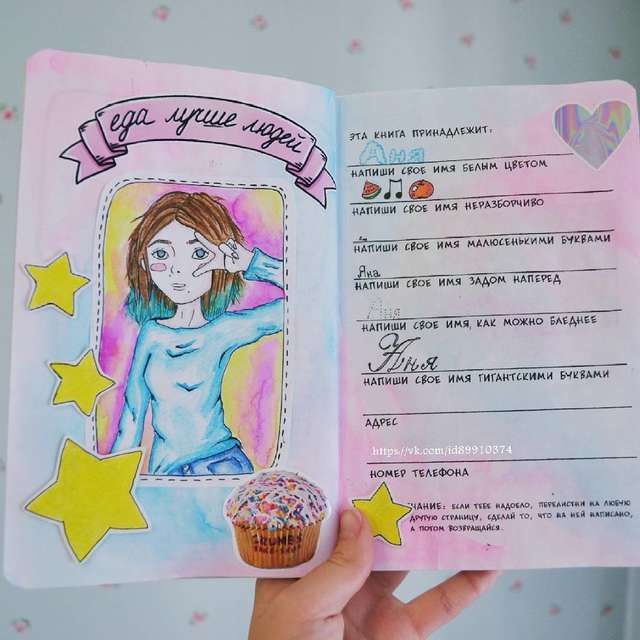 еда лучше людей
ЭТА КНИГА ПРИНАДЛЕЖИТ:
Аня
НАПИШИ СВОЕ ИМЯ БЕЛЫМ ЦВЕТОМ
НАПИШИ СВОЕ ИМЯ НЕРАЗБОРЧИВО
НАПИШИ СВОЕ ИМЯ МАЛЮСЕНЬКИМИ БУКВАМИ
Яна
НАПИШИ СВОЕ ИМЯ ЗАДОМ НАПЕРЕД
Аня
НАПИШИ СВОЕ ИМЯ, КАК МОЖНО БЛЕДНЕЕ
Аня
НАПИШИ СВОЕ ИМЯ ГИГАНТСКИМИ БУКВАМИ
АДРЕС
https://vk.com/id89910374
НОМЕР ТЕЛЕФОНА
ЧАНИЕ: ЕСЛИ ТЕБЕ НАДОЕЛО, ПЕРЕЛИСТНИ НА ЛЮБУЮ
ДРУГУЮ СТРАНИЦУ, СДЕЛАЙ ТО, ЧТО НА НЕЙ НАПИСАНО,
А ПОТОМ ВОЗВРАЩАЙСЯ.